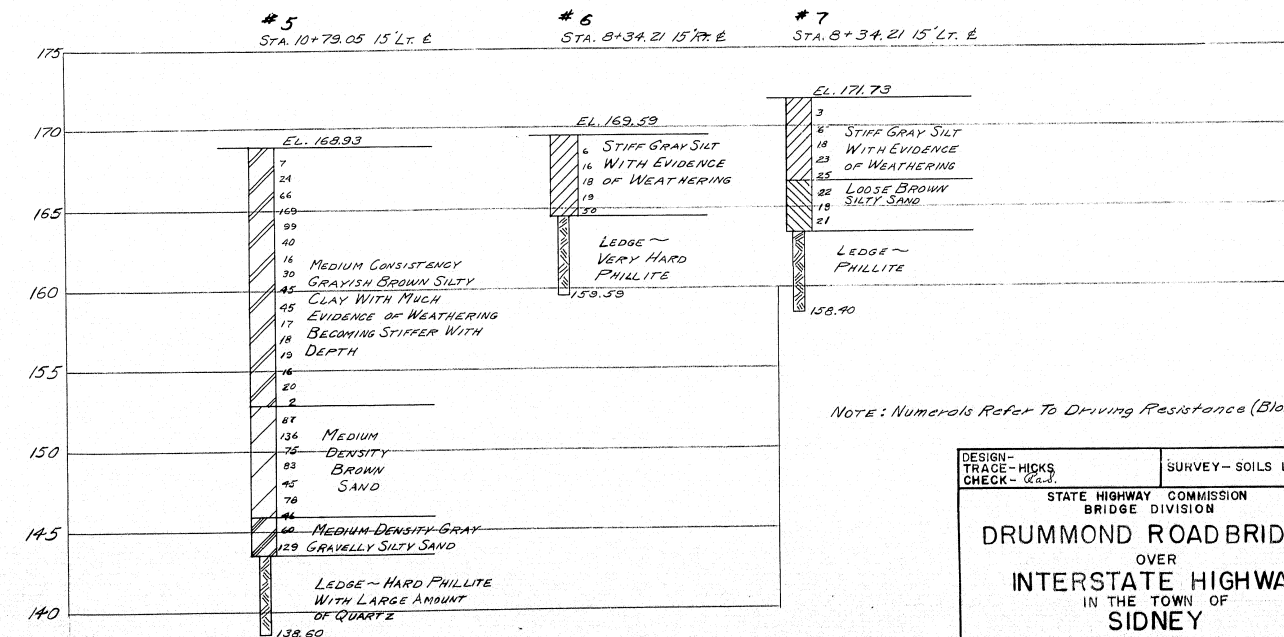 #5
STA. 10+79.05 15' LT. ℄
#6
STA. 8+34.21 15' RT. ℄
#7
STA. 8+34.21 15' LT. ℄
175
170
165
160
155
150
145
140
EL. 168.93
7
24
66
169
99
40
16
30
45
45
17
18
19
16
20
2
MEDIUM CONSISTENCY
GRAYISH BROWN SILTY
CLAY WITH MUCH
EVIDENCE OF WEATHERING
BECOMING STIFFER WITH
DEPTH
87
136
75
83
45
78
46
MEDIUM
DENSITY
BROWN
SAND
60
129
MEDIUM DENSITY GRAY
GRAVELLY SILTY SAND
LEDGE ~ HARD PHILLITE
WITH LARGE AMOUNT
OF QUARTZ
138.60
EL. 169.59
6
16
18
19
50
STIFF GRAY SILT
WITH EVIDENCE
OF WEATHERING
LEDGE ~
VERY HARD
PHILLITE
159.59
EL. 171.73
3
6
18
23
25
STIFF GRAY SILT
WITH EVIDENCE
OF WEATHERING
22
19
21
LOOSE BROWN
SILTY SAND
LEDGE ~
PHILLITE
158.40
NOTE: Numerals Refer To Driving Resistance (Blo
DESIGN-
TRACE- HICKS
CHECK-
SURVEY- SOILS L
STATE HIGHWAY COMMISSION
BRIDGE DIVISION
DRUMMOND ROAD BRID
OVER
INTERSTATE HIGHWA
IN THE TOWN OF
SIDNEY